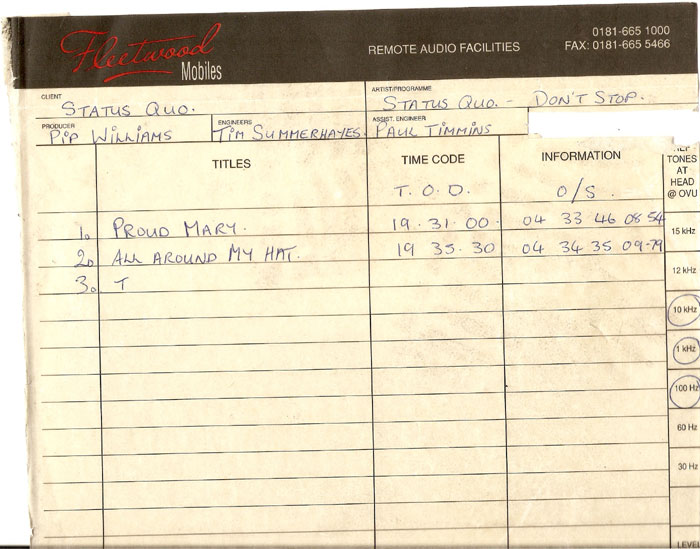 Fleetwood
Mobiles
REMOTE AUDIO FACILITIES
0181-665 1000
FAX: 0181-665 5466
CLIENT
STATUS QUO.
ARTIST/PROGRAMME
STATUS QUO. - DON'T STOP.
PRODUCER
PIP WILLIAMS
ENGINEERS
TIM SUMMERHAYES.
ASSIST. ENGINEER
PAUL TIMMINS
TITLES
TIME CODE
INFORMATION
TONES
AT
HEAD
@ OVU
T. O. D.
O/S.
1. PROUD MARY. 19. 31. 00. 04 33 46 08 54
15 kHz
2. ALL AROUND MY HAT. 19 35. 30 04 34 35 09-79
12 kHz
3. T
10 kHz
1 kHz
100 Hz
60 Hz
30 Hz
LEVEL